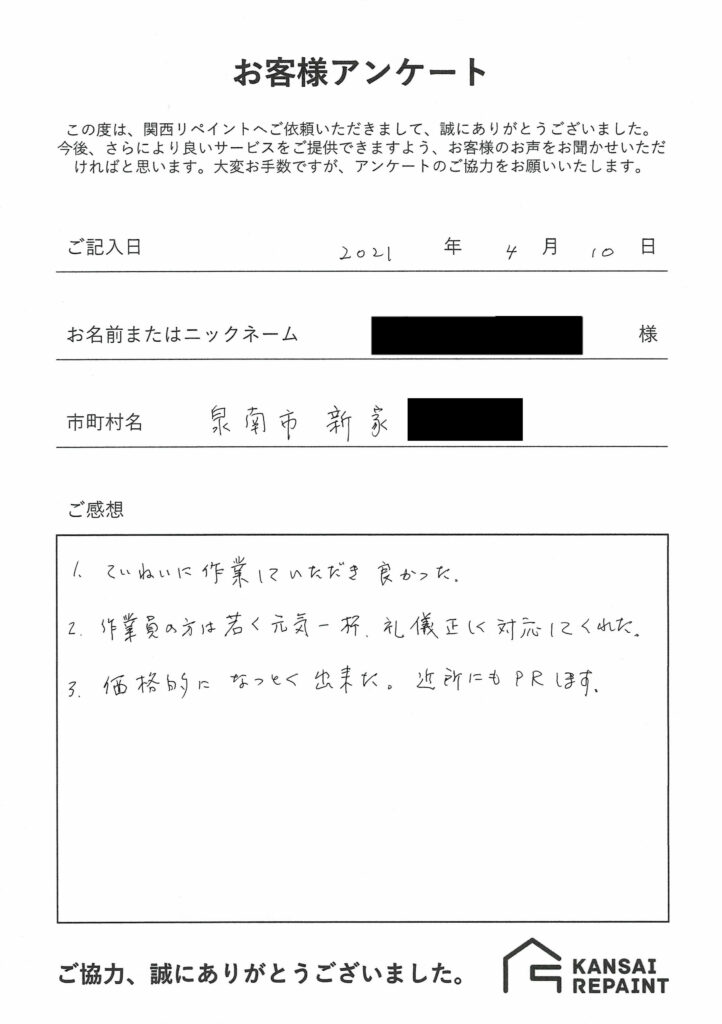 お客様アンケート
この度は、関西リペイントへご依頼いただきまして、誠にありがとうございました。
今後、さらにより良いサービスをご提供できますよう、お客様のお声をお聞かせいただ
ければと思います。大変お手数ですが、アンケートのご協力をお願いいたします。
ご記入日 2021 年 4 月 10 日
お名前またはニックネーム 様
市町村名 泉南市 新家
ご感想
1. ていねいに作業していただき良かった。
2. 作業員の方は若く元気一杯、礼儀正しく対応してくれた。
3. 価格的になっとく出来た。近所にもPRします。
ご協力、誠にありがとうございました。
KANSAI
REPAINT